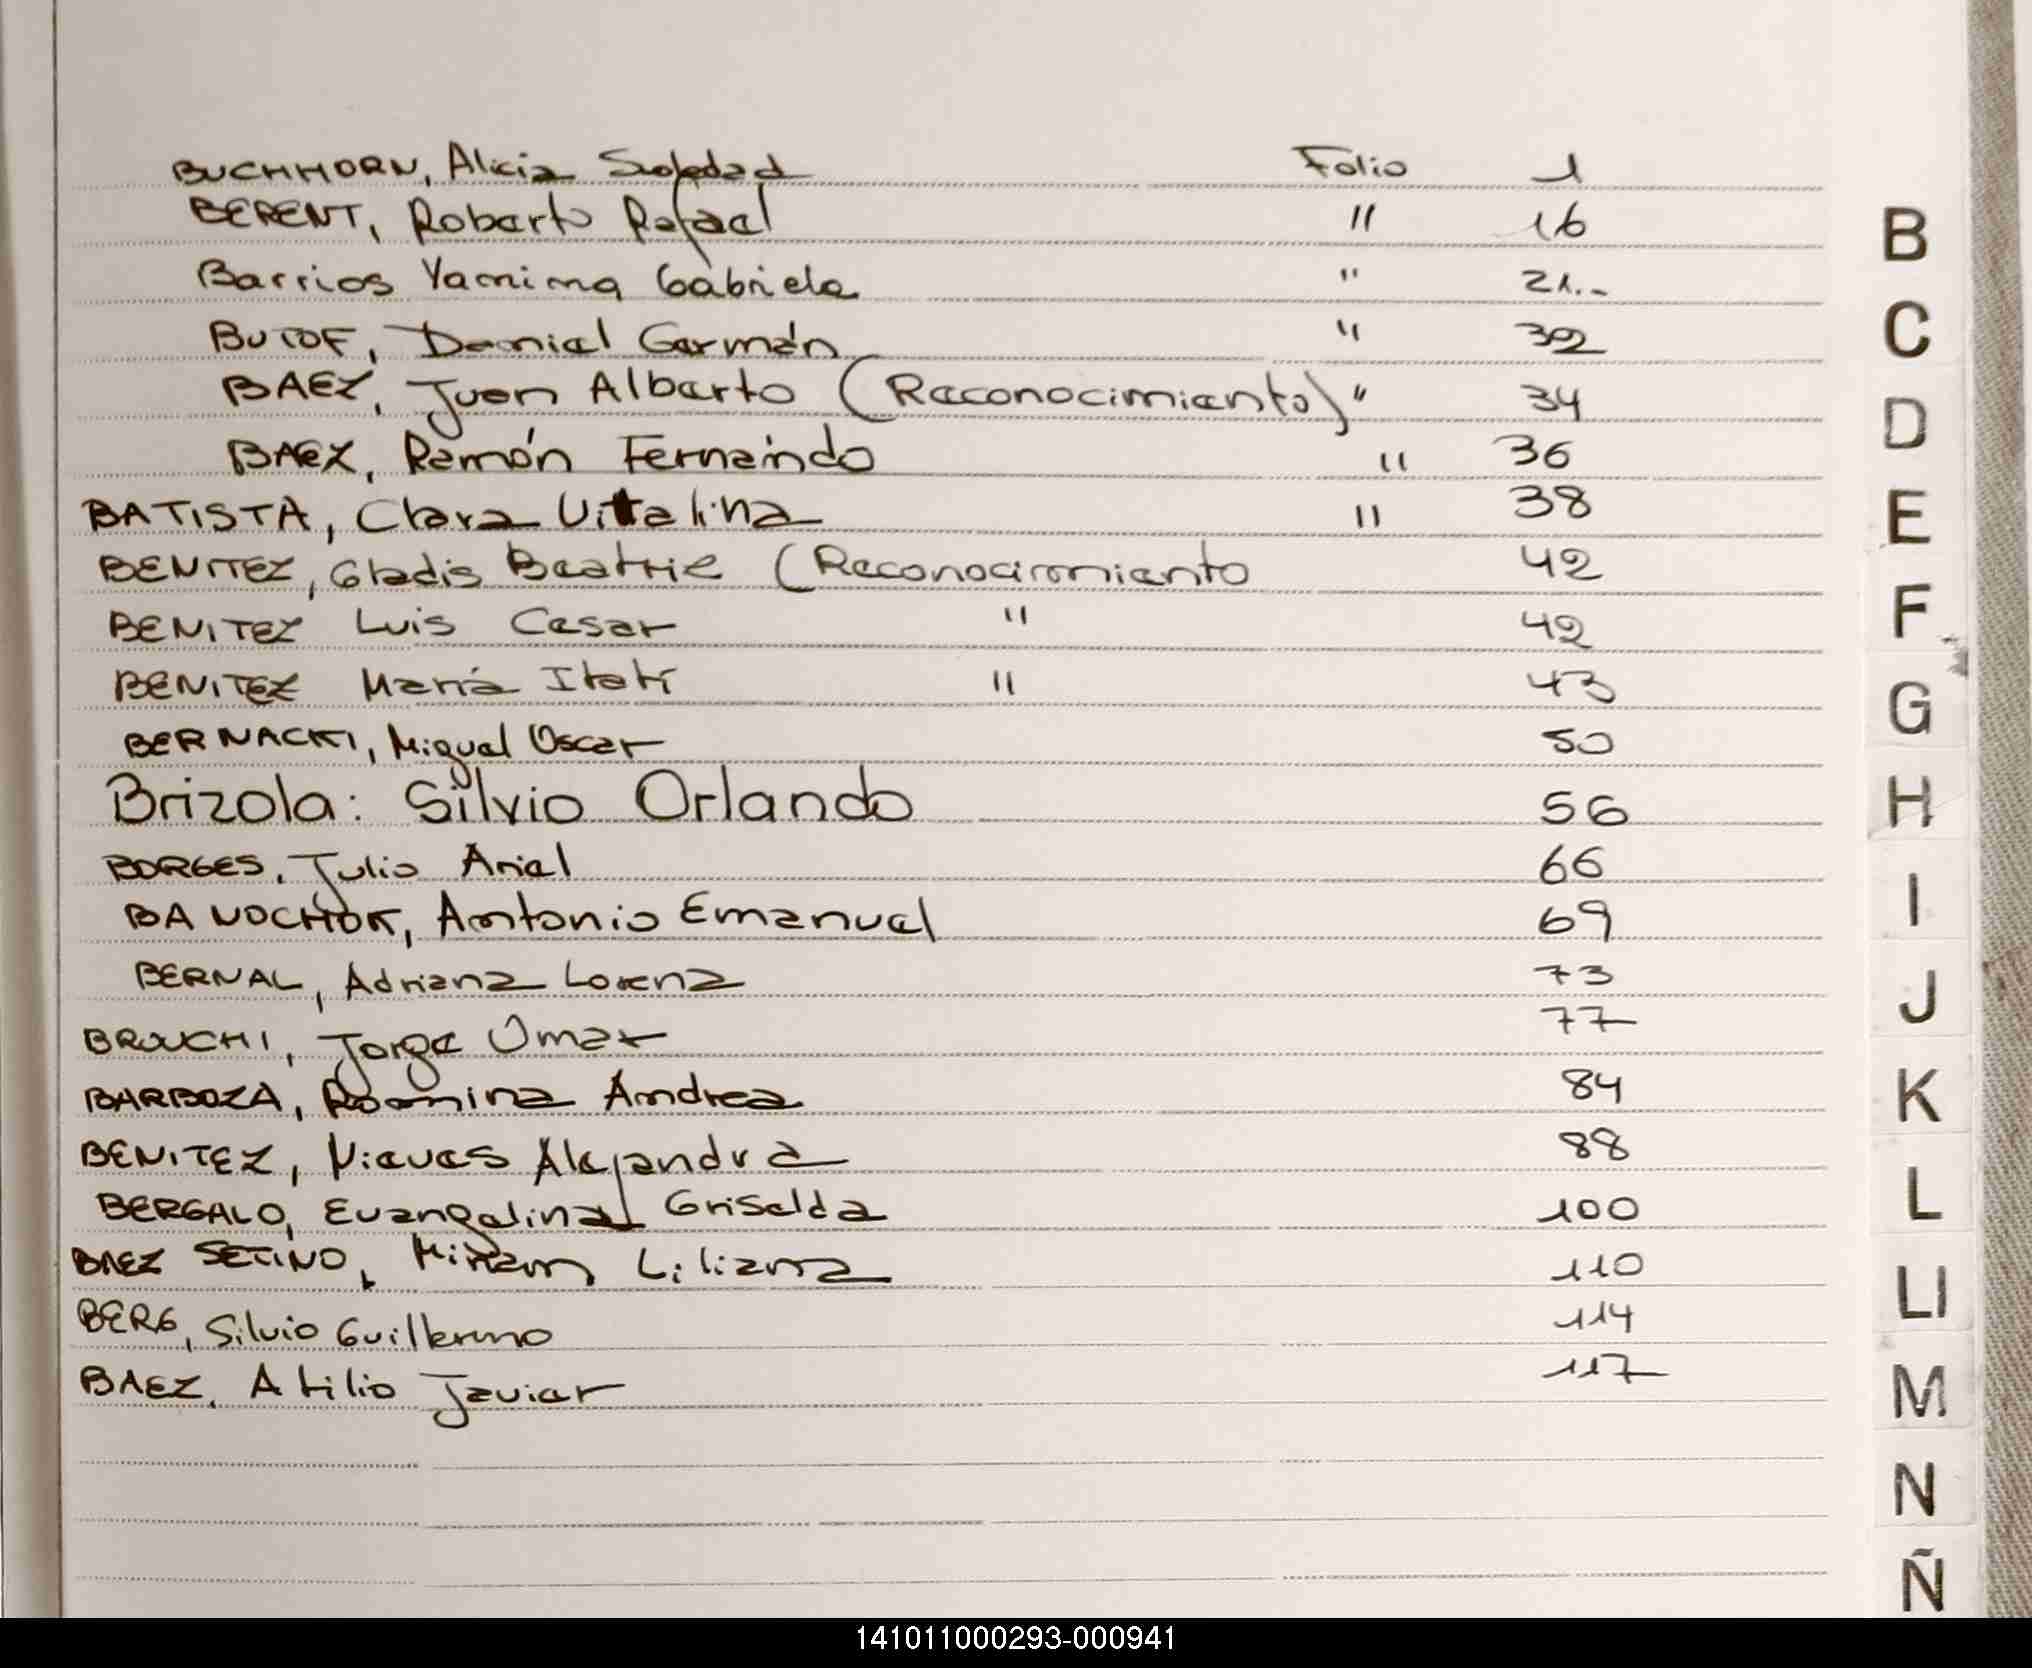 BUCHHORN, Alicia Soledad Folio 1
BERENT, Roberto Rafael " 16
Barrios Yamima Gabriela " 21..-
BUTOF, Daniel Germán " 32
BAEZ, Juan Alberto (Reconocimiento) " 34
BAEZ, Ramón Fernando " 36
BATISTA, Clara Vitalina " 38
BENITEZ, Gladis Beatriz (Reconocimiento 42
BENITEZ Luis Cesar " 42
BENITEZ María Itatí " 43
BERNACKI, Miguel Oscar 50
Brizola: Silvio Orlando 56
BORGES, Julio Ariel 66
BANOCHOK, Antonio Emanuel 69
BERNAL, Adriana Lorena 73
BROUCHI, Jorge Omar 77
BARBOZA, Romina Andrea 84
BENITEZ, Nieves Alejandra 88
BERGALO, Evangelina Griselda 100
BAEZ SETINO, Miriam Liliana 110
BERG, Silvio Guillermo 114
BAEZ, Atilio Javier 117
B
C
D
E
F
G
H
I
J
K
L
Ll
M
N
Ñ
141011000293-000941